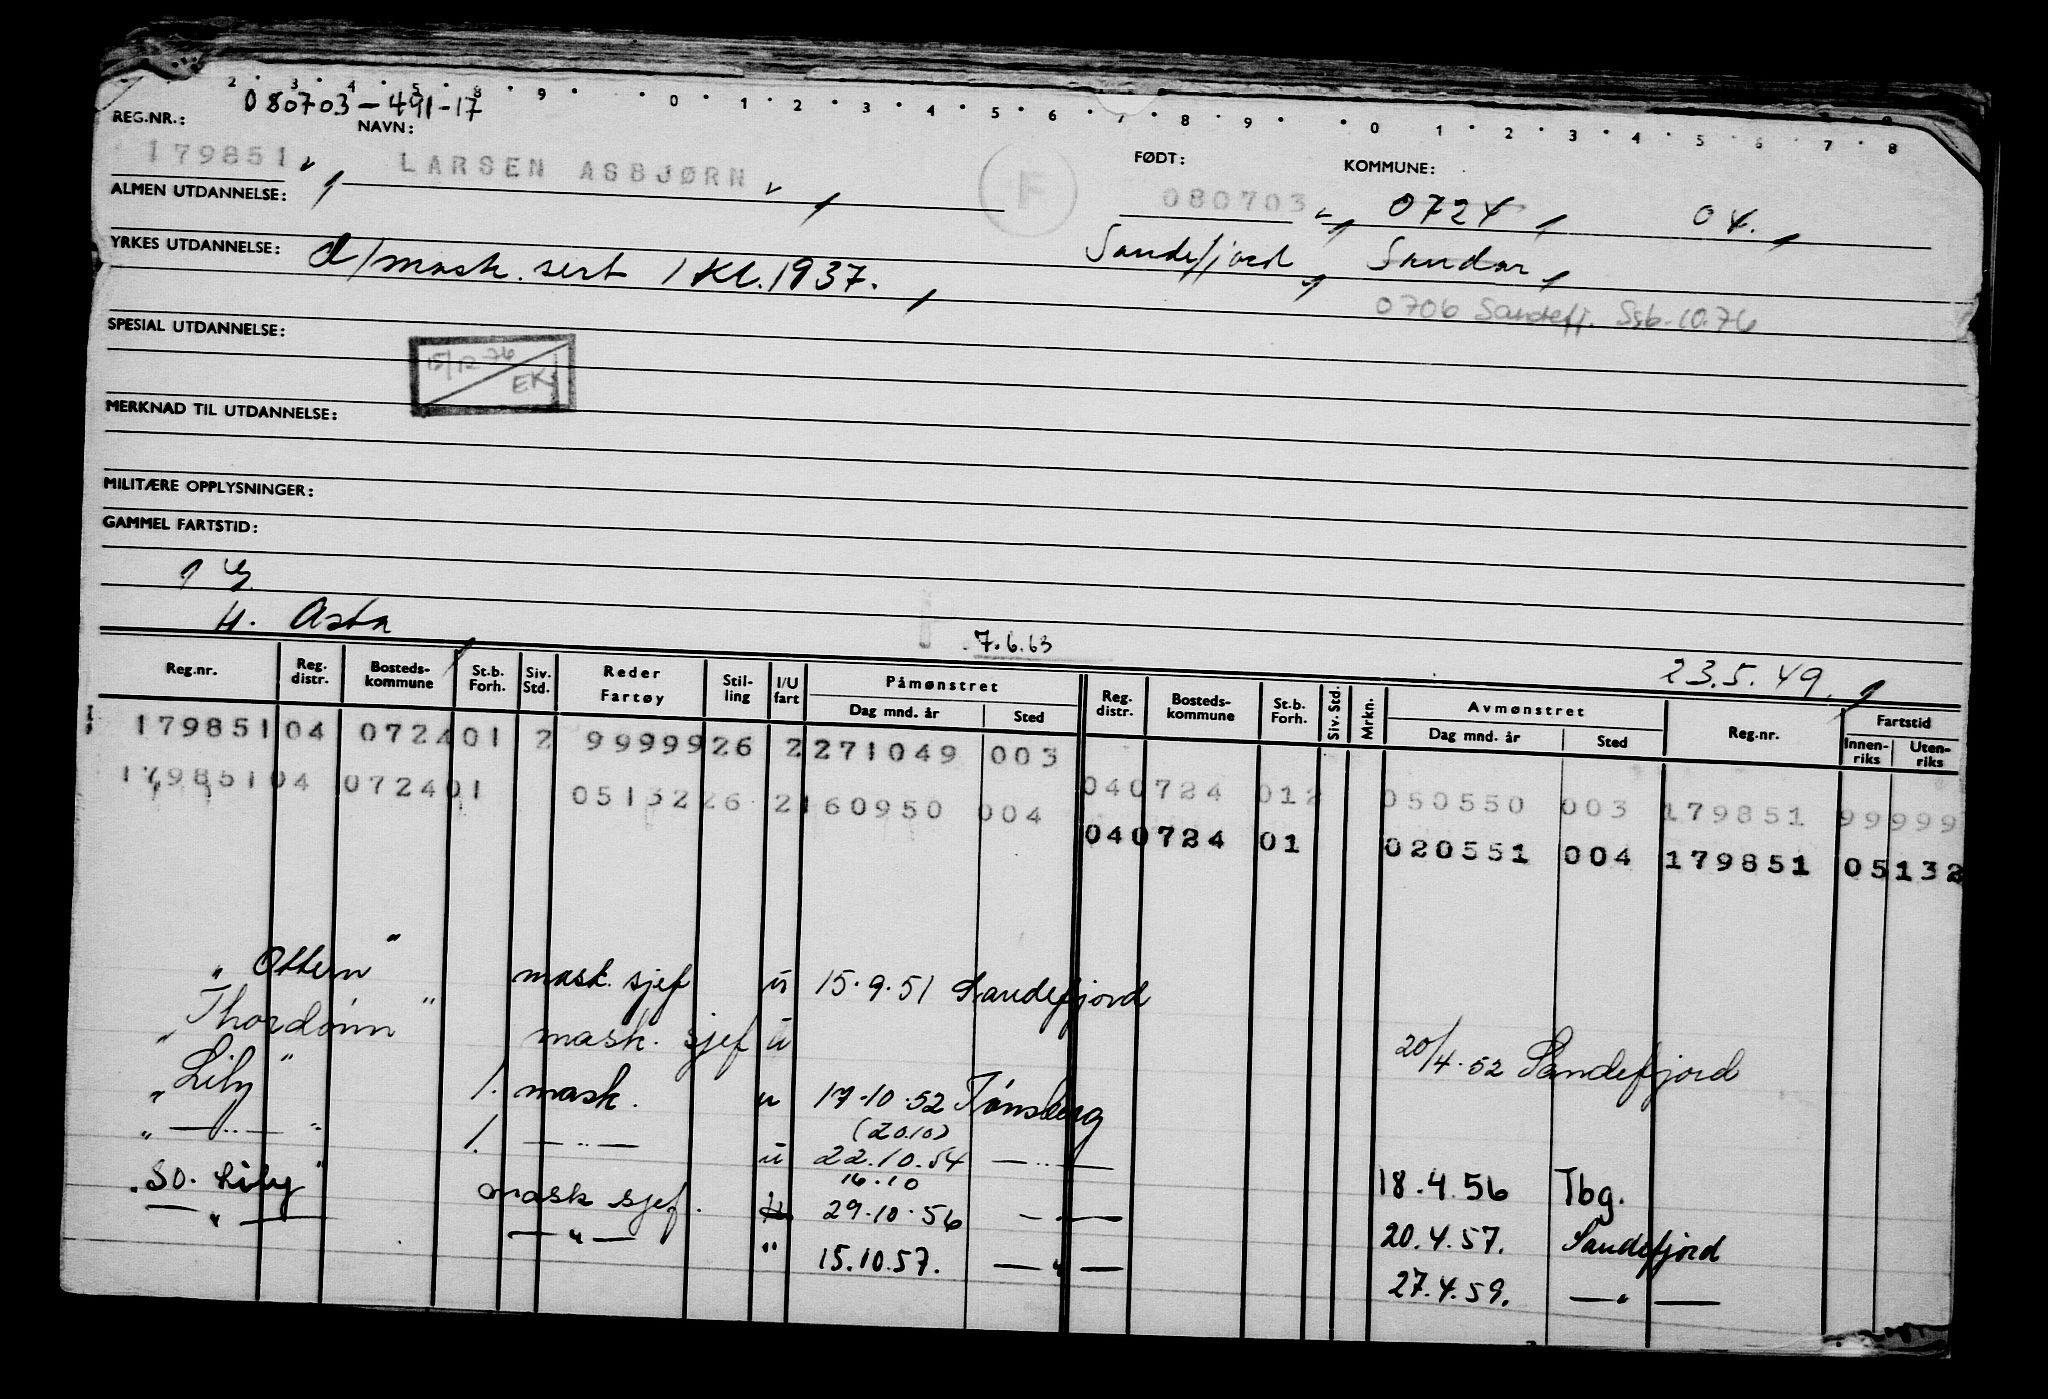 2 · 3 · 4 · 5 · 8 · 9 · · 0 · 1 · 2 · 3 · 4 · 5 · 6 · 7 · 8 · 9 · · 0 · 1 · 2 · 3 · 4 · 5 · 6 · 7 · 8
080703-491-17
REG.NR.: NAVN: FØDT: KOMMUNE:
179851 LARSEN ASBJØRN F 080703 0724 04.
ALMEN UTDANNELSE:
Sandefjord, Sandar,
YRKES UTDANNELSE: d/mask. sert 1 Kl. 1937.
0706 Sandefj. Ssb-10.76
SPESIAL UTDANNELSE:
15/12-76 EK
MERKNAD TIL UTDANNELSE:
MILITÆRE OPPLYSNINGER:
GAMMEL FARTSTID:
H. Asta
7.6.63
23.5.49.
Reg.nr. Reg. distr. Bosteds-kommune St.b. Forh. Siv. Std. Reder Fartøy Stil-ling I/U fart Påmønstret Dag mnd. år Sted Reg. distr. Bosteds-kommune St.b. Forh. Siv. Std. Mrkn. Avmønstret Dag mnd. år Sted Reg.nr. Fartstid Innen-riks Uten-riks
179851 04 0724 01 2 99999 26 2 271049 003
04 0724 01 2 050550 003 179851 99999
179851 04 0724 01 05132 26 2 160950 004
04 0724 01 020551 004 179851 05132
"Ottern" mask. sjef u 15.9.51 Sandefjord
"Thordønn" mask. sjef u 20/4.52 Sandefjord
"Lily" 1. mask. u 17.10.52 Tønsberg
(20.10)
" — .. — " 1. — .. — u 22.10.54 — .. — 18.4.56 Tbg.
16.10
"SO. Lily" mask sjef. u 29.10.56 — " — 20.4.57. Sandefjord
— " — — " — " 15.10.57. — " — 27.4.59. — " —